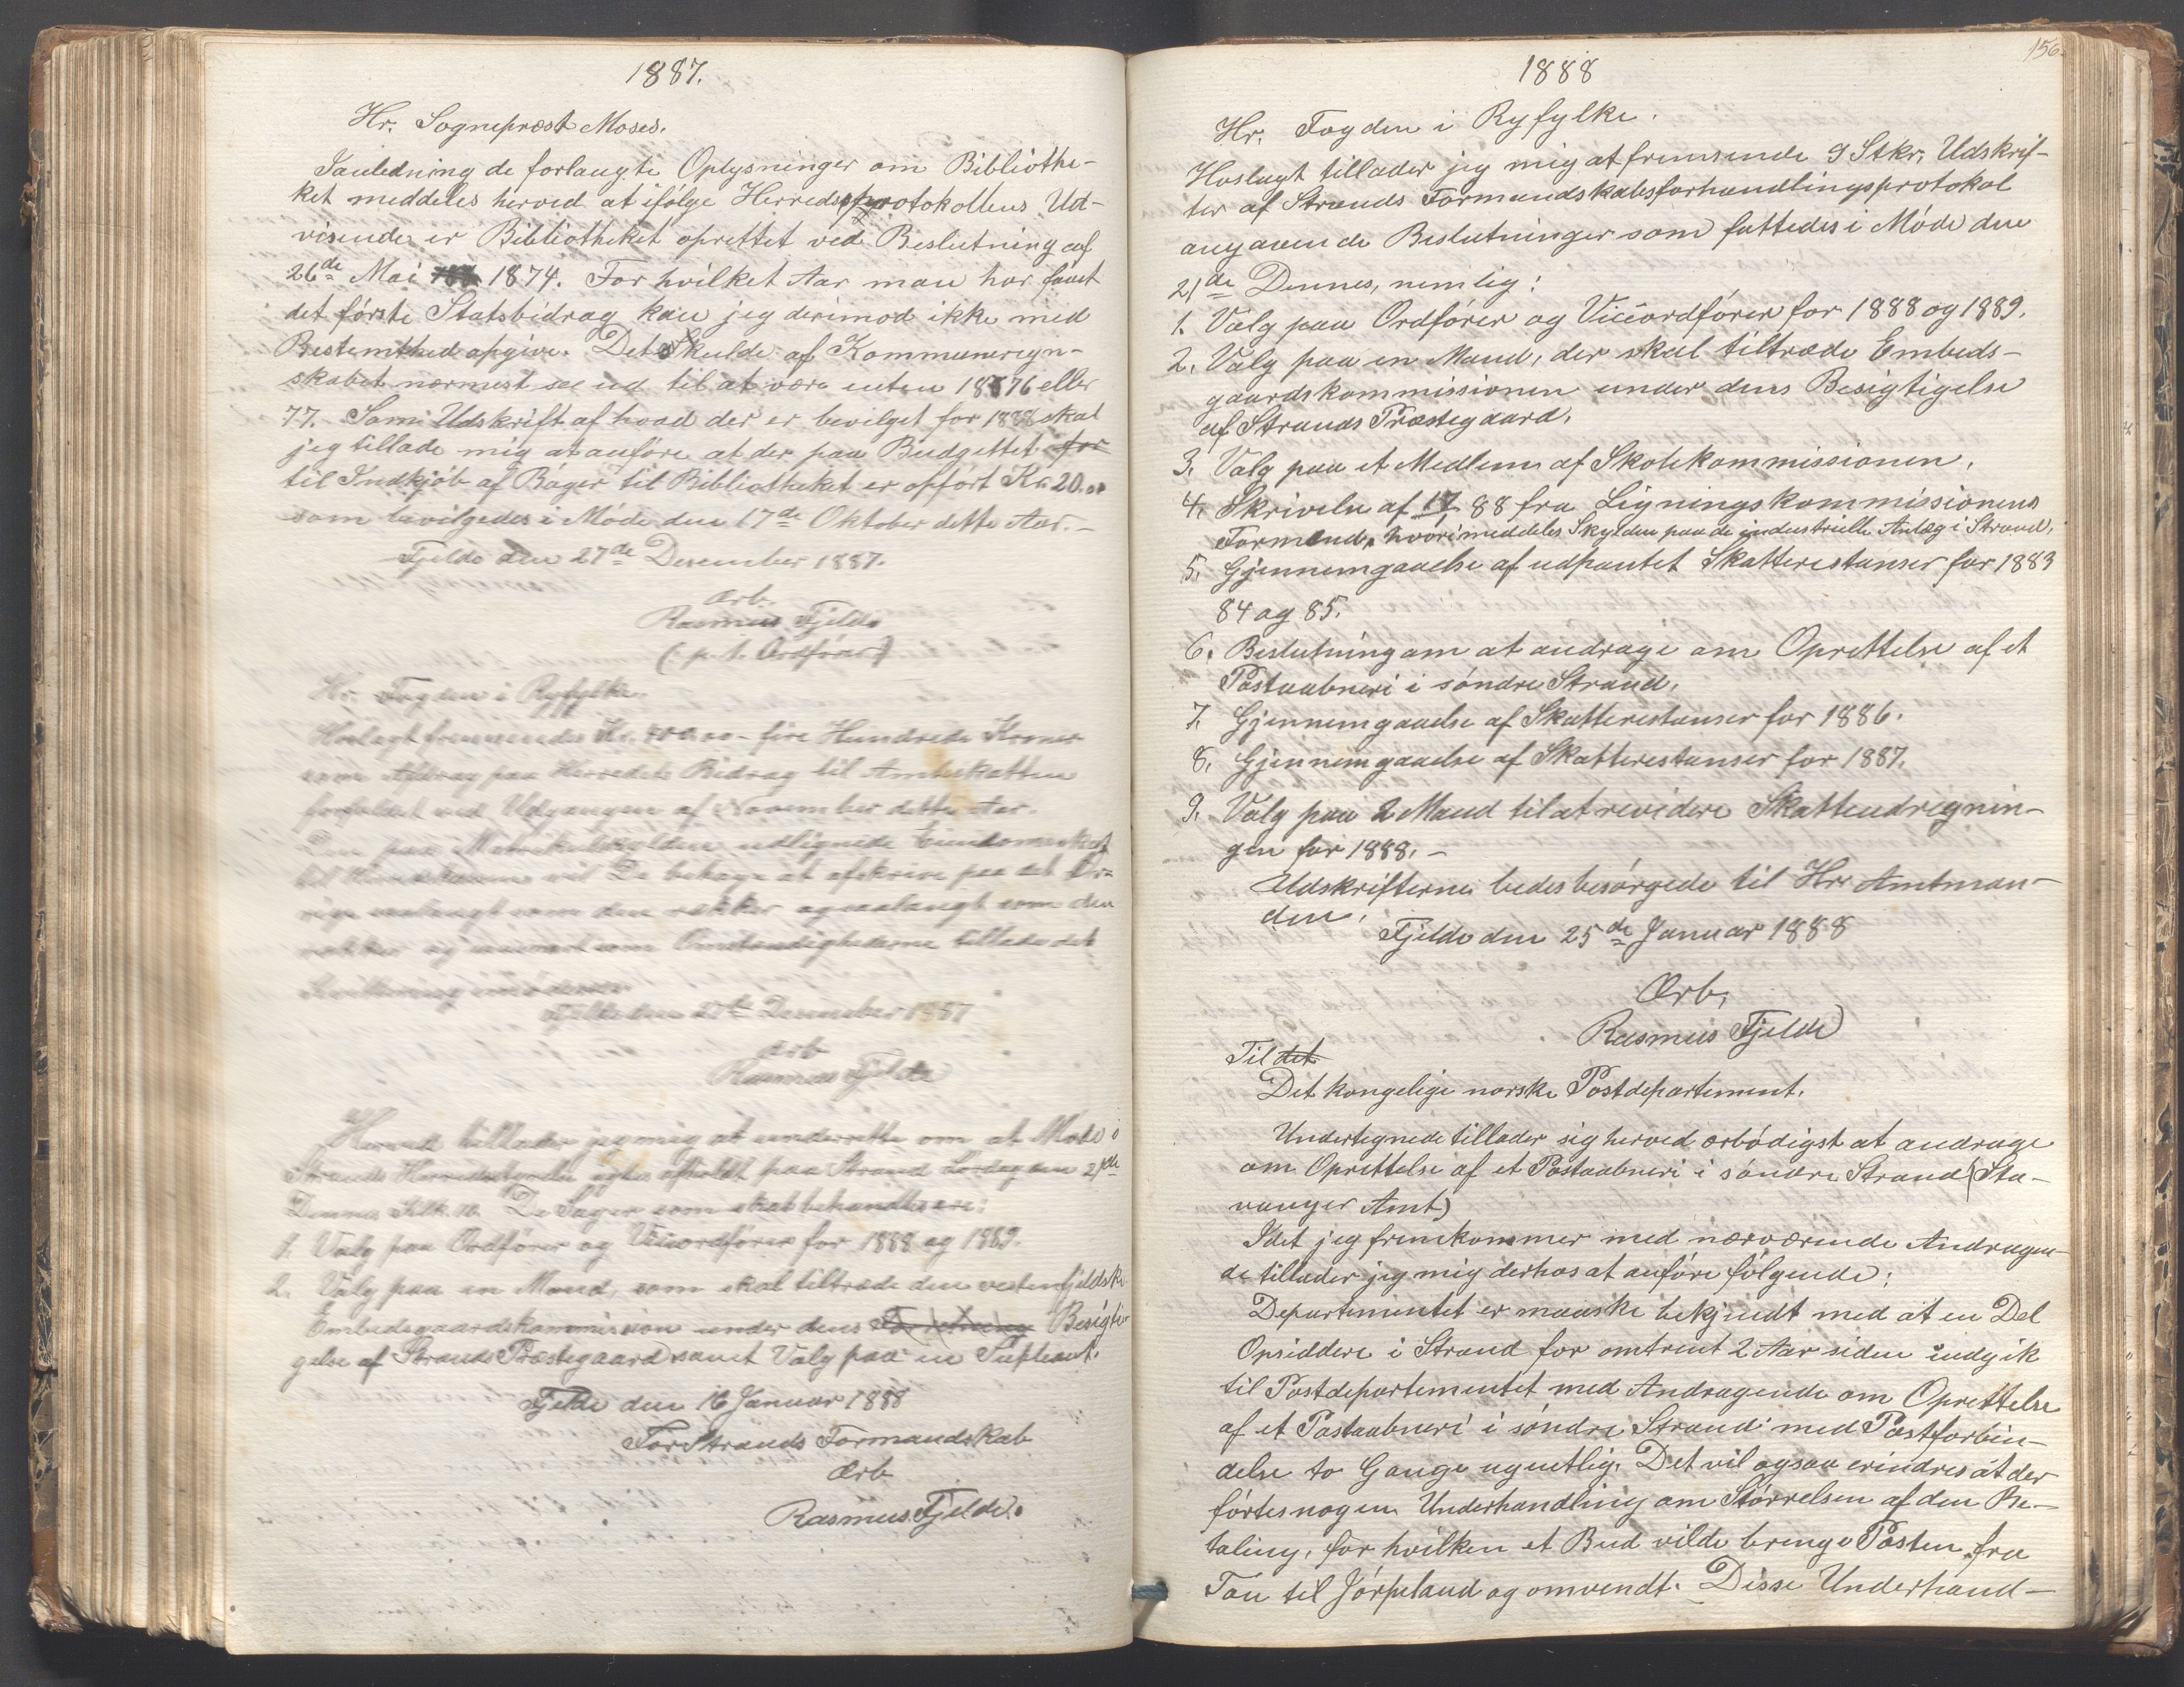 1887.
Hr. Sogneprest Moses.
I anledning de forlangte Oplysninger om Bibliothe-
ket meddeles herved at ifølge Herredsprotokollens Ud-
visende er Bibliotheket oprettet ved Beslutning af
26de Mai 1874. For hvilket Aar man har faaet
det første Statsbidrag kan jeg derimod ikke med
Bestemthed opgive. Det skulde af Kommuneregn-
skabet nærmest see ud til at være enten 1876 eller
77. Som Udskrift af hvad der er bevilget for 1888 skal
jeg tillade mig at anføre at der paa Budgettet for
til Indkjøb af Bøger til Bibliotheket er opført Kr. 20.00
som bevilgedes i Møde den 17de Oktober dette Aar.-
Fjelde den 27de Desember 1887.
Ærb.
Rasmus Fjelde
(p. t. Ordfører)
Hr. Fogden i Ryfylke.
Hoslagt fremsendes Kr. 400.00 - fire Hundrede Kroner
som Afdrag paa Herredets Bidrag til Amtsskatten
forfaldet ved Udgangen af November dette Aar.
Den paa Matrikulskylden udlignede Eiendomsskat
til vil De behage at afskrive paa det Øv-
rige saalangt som den rækker og saalangt som den
rækker og saasnart som Omstændighederne tillade det
Kvittering imødesees.
Fjelde den 27de Desember 1887
Ærb
Rasmus Fjelde
Herved tillader jeg mig at underrette om at Møde i
Strands Herredsstyrelse agtes afholdt paa Strand Lørdag den 21de
Dennes Klk. 10. De Sager som skal behandles ere:
1. Valg paa Ordfører og Viceordfører for 1888 og 1889.
2. Valg paa en Mand, som skal tiltræde den vestenfjeldske
Embedsgaardskommission under dens Forretning Besigti-
gelse af Strands Præstegaard samt Valg paa en Supleant.
Fjelde den 16 Januar 1888
For Strands Formandskab
Ærb
Rasmus Fjelde.
156.
1888
Hr. Fogden i Ryfylke.
Hoslagt tillader jeg mig at fremsende 9 Stkr. Udskrif-
ter af Strands Formandskabsforhandlingsprotokol
angaaende Beslutninger som fattedes i Møde den
21de Dennes, nemlig:
1. Valg paa Ordfører og Viceordfører for 1888 og 1889.
2. Valg paa en Mand, der skal tiltræde Embeds-
gaardskommissionen under dens Besigtigelse
af Strands Præstegaard.
3. Valg paa et Medlem af Skolekommissionen.
4. Skrivelse af 17 88 fra Ligningskommissionens
Formand, hvori meddeles Skylden paa de industrielle Anlæg i Strand.
5. Gjennemgaaelse af udpantet Skatterestanser for 1883
84 og 85.
6. Beslutning om at andrage om Oprettelse af et
Postaabneri i søndre Strand.
7. Gjennemgaaelse af Skatterestanser for 1886.
8. Gjennemgaaelse af Skatterestanser for 1887.
9. Valg paa 2 Mand til at revidere Skatteudregnin-
gen for 1888. -
Udskrifterne bedes besørgede til Hr. Amtman-
den.
Fjelde den 25de Januar 1888
Ærb.
Rasmus Fjelde
Til det
Det kongelige norske Postdepartement.
Undertegnede tillader sig herved ærbødigst at andrage
om Oprettelse af et Postaabneri i søndre Strand (Sta-
vanger Amt)
Idet jeg fremkommer med nærværende Andragen-
de tillader jeg mig derhos at anføre følgende:
Departementet er maaske bekjendt med at en Del
Opsiddere i Strand for omtrent 2 Aar siden indgik
til Postdepartementet med Andragende om Oprettelse
af et Postaabneri i søndre Strand med Postforbin-
delse to Gange ugentlig. Det vil ogsaa erindres at der
førtes nogen Underhandling om Størrelsen af den Be-
taling, for hvilken et Bud vilde bringe Posten fra
Tau til Jørpeland og omvendt. Disse Underhand-